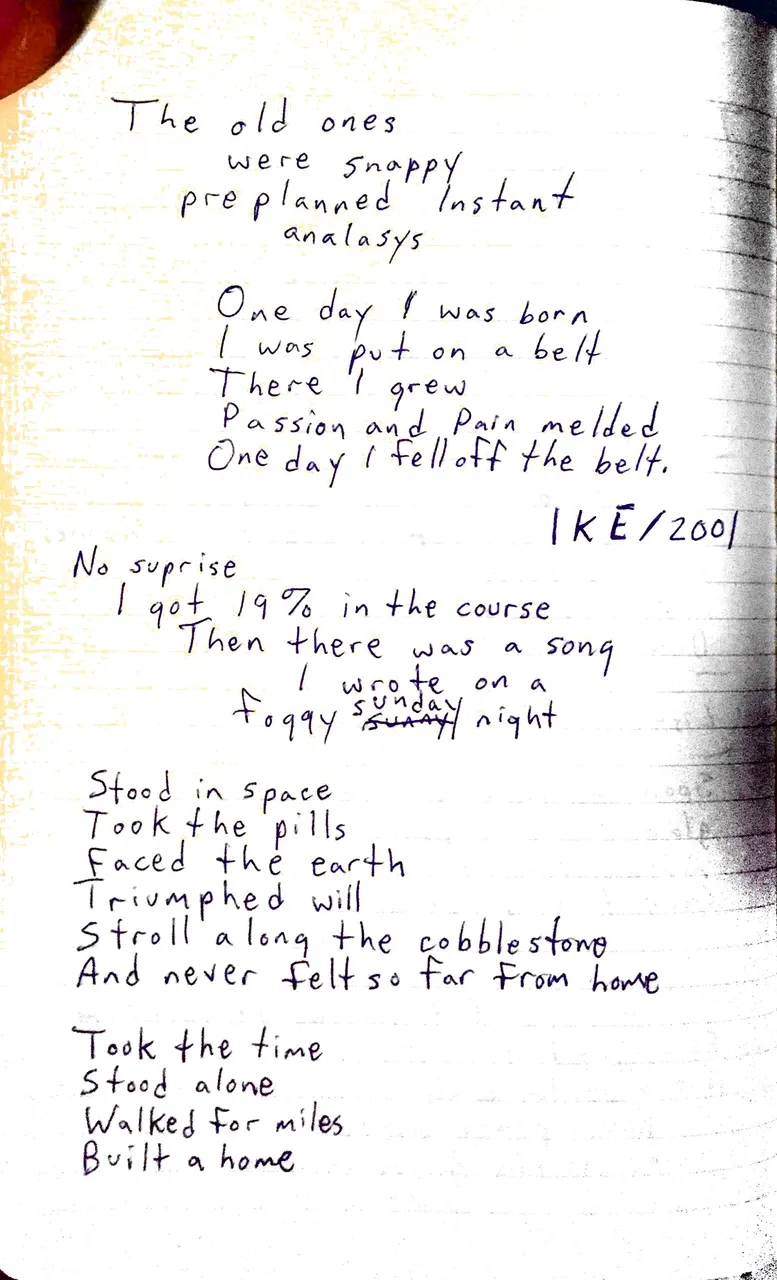 The old ones
were snappy
preplanned instant
analasys
One day I was born
I was put on a belt
There I grew
Passion and Pain melded
One day I fell off the belt.
IKE/2001
No suprise
I got 19% in the course
Then there was a song
I wrote on a
foggy sunday night
Stood in space
Took the pills
Faced the earth
Triumphed will
Stroll along the cobblestone
And never felt so far from home
Took the time
Stood alone
Walked for miles
Built a home